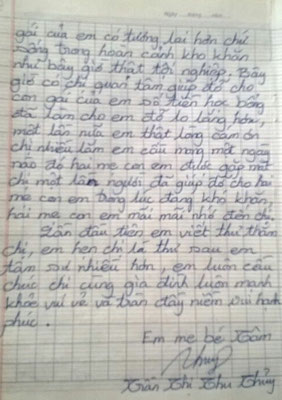 gái của em có tương lai hơn chứ
sống trong hoàn cảnh khó khăn
như bây giờ thật tội nghiệp. Bây
giờ có chị quan tâm giúp đỡ cho
con gái của em số tiền học bổng
đã làm cho em đỡ lo lắng hơn,
một lần nữa em thật lòng cảm ơn
chị nhiều lắm em cầu mong một ngày
nào đó hai mẹ con em được gặp mặt
chị một lần người đã giúp đỡ cho hai
mẹ con em trong lúc đang khó khăn,
hai mẹ con em mãi mãi nhớ đến chị.
Lần đầu tiên em viết thư thăm
chị, em hẹn chị lá thư sau em
tâm sự nhiều hơn, em luôn cầu
chúc chị cùng gia đình luôn mạnh
khỏe vui vẻ và tràn đầy niềm vui hạnh
phúc.
Em mẹ bé Trâm
Thuỷ
Trần Thị Thu Thủy